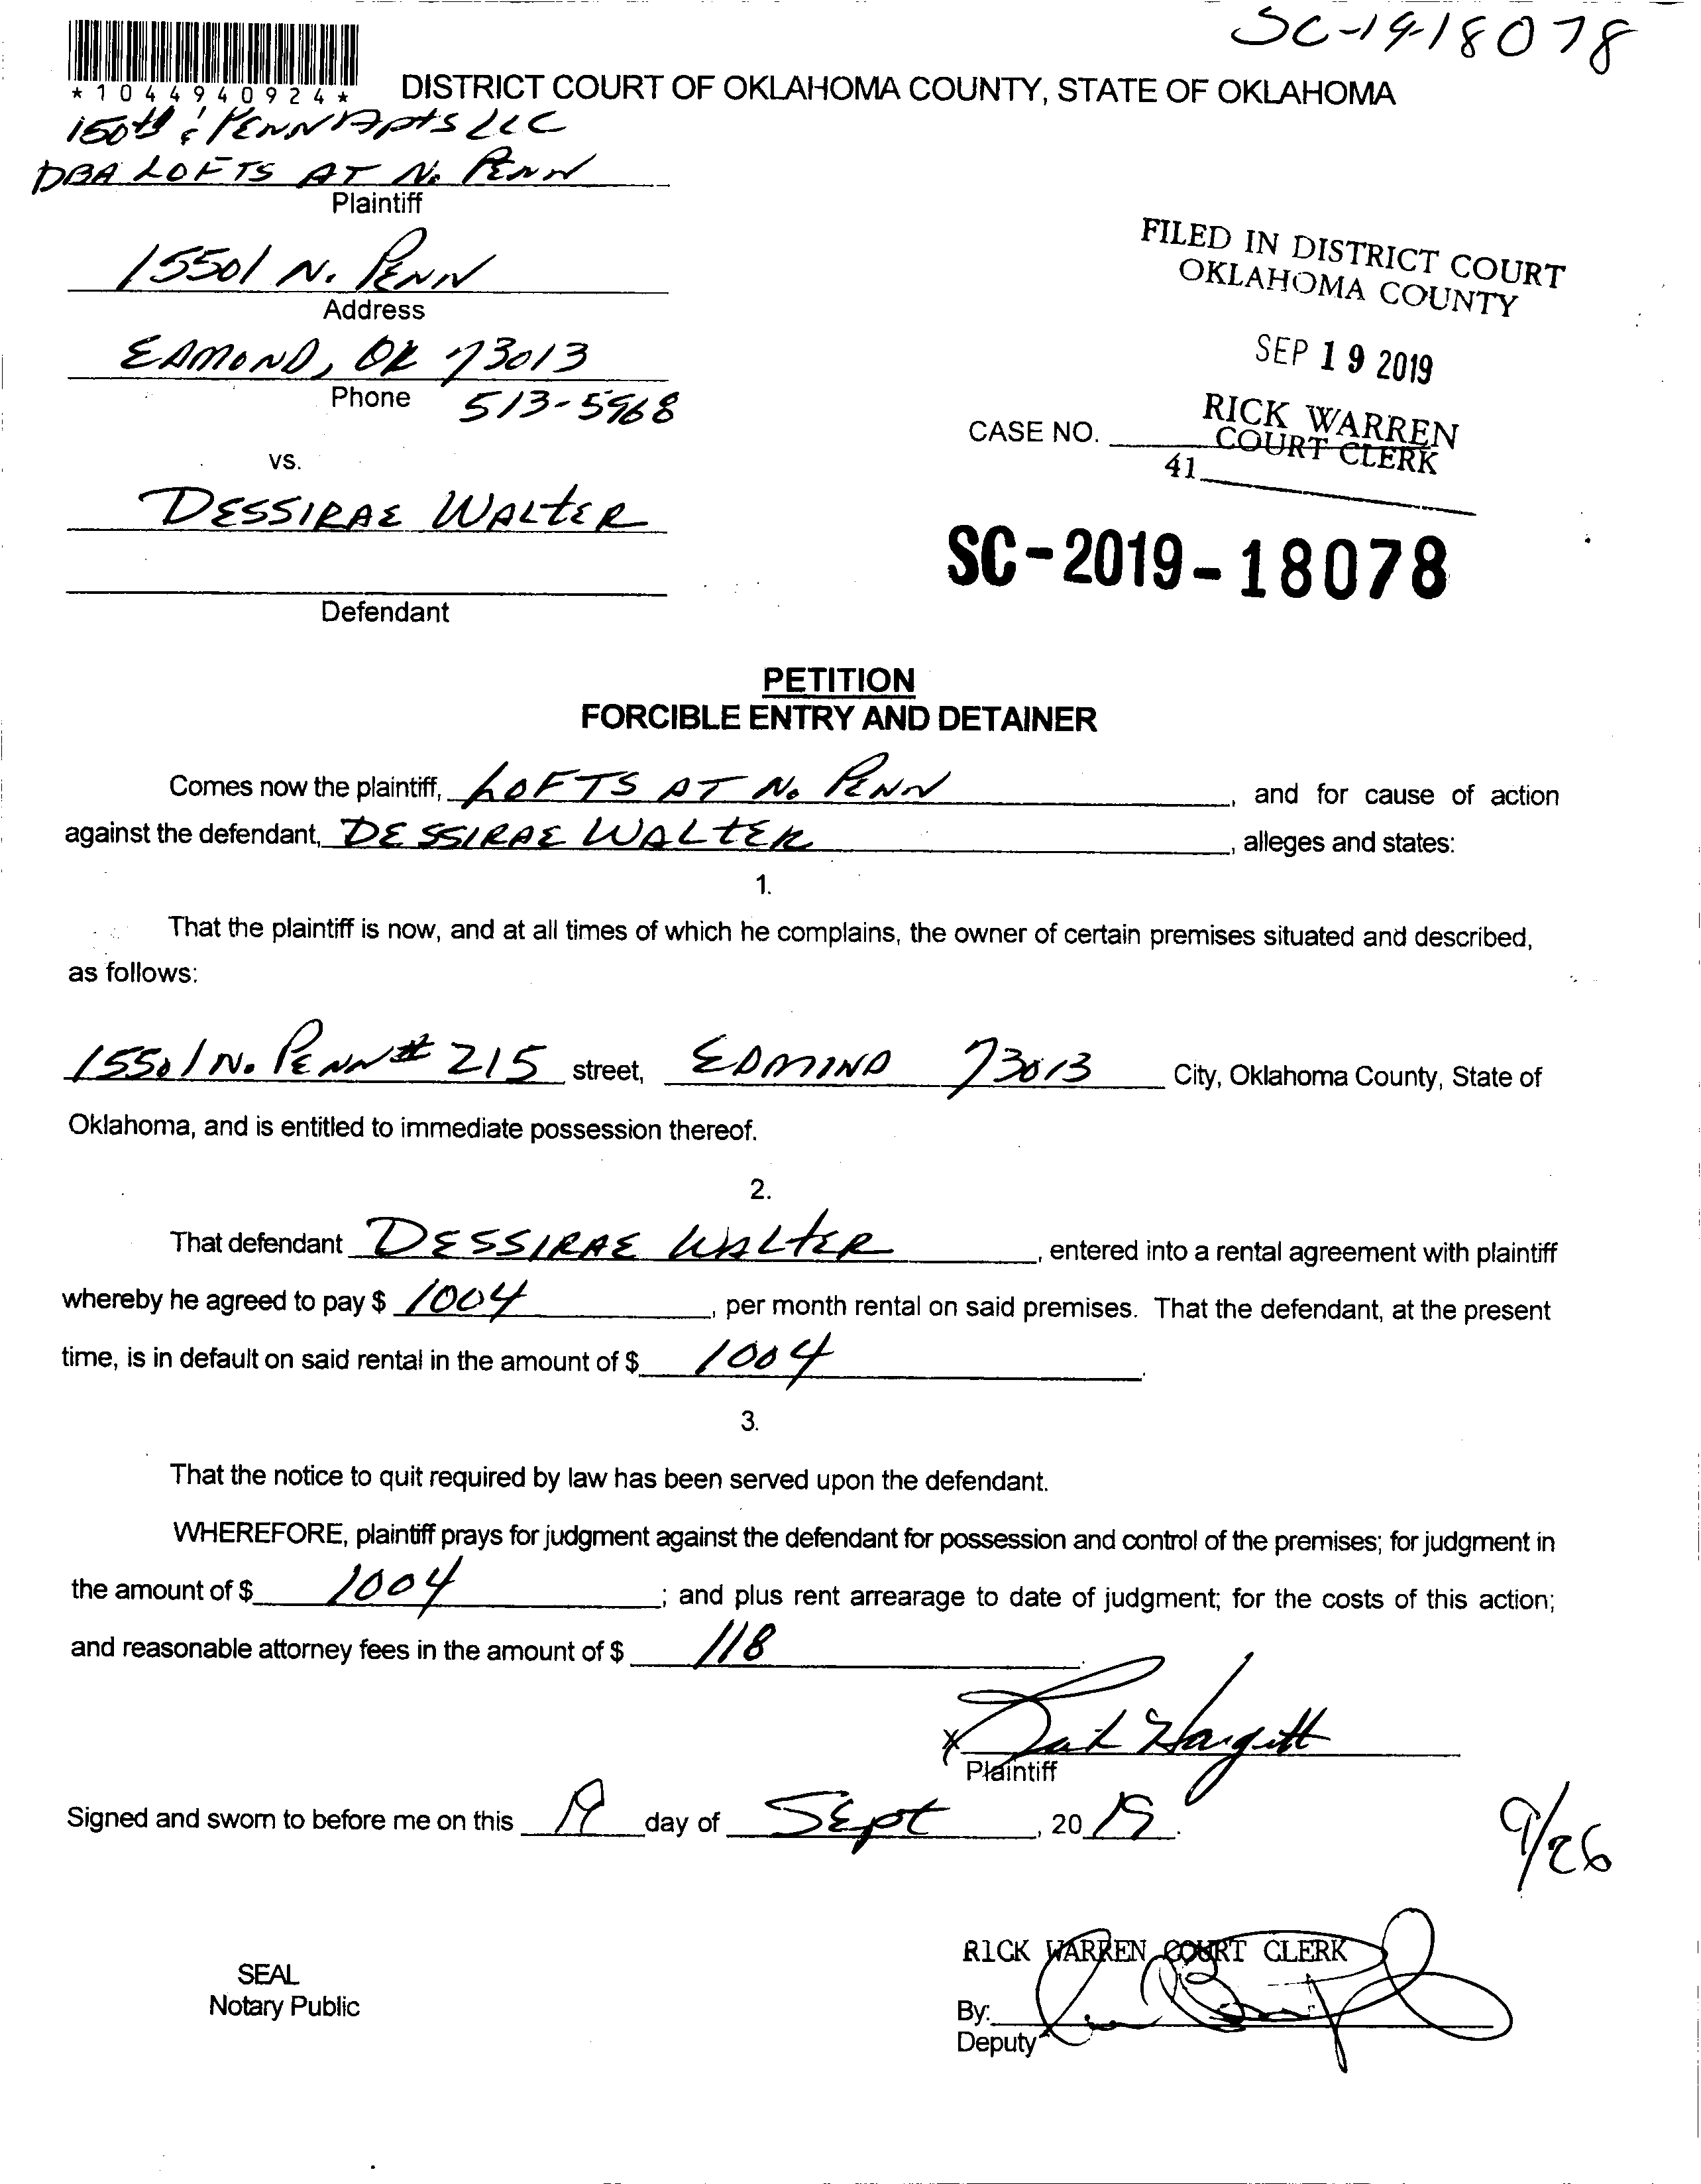 SC-19-18078
*1044940924*
DISTRICT COURT OF OKLAHOMA COUNTY, STATE OF OKLAHOMA
150th & PENN Apts LLC
DBA LOFTS AT N. PENN
Plaintiff
15501 N. PENN
Address
EDMOND, OK 73013
Phone 513-5968
FILED IN DISTRICT COURT
OKLAHOMA COUNTY
SEP 19 2019
RICK WARREN
COURT CLERK
41
CASE NO.
vs.
DESSIRAE WALTER
Defendant
SC-2019-18078
PETITION
FORCIBLE ENTRY AND DETAINER
Comes now the plaintiff, LOFTS AT N. PENN, and for cause of action
against the defendant, DESSIRAE WALTER, alleges and states:
1.
That the plaintiff is now, and at all times of which he complains, the owner of certain premises situated and described,
as follows:
15501 N. PENN # 215 street, EDMIND 73013 City, Oklahoma County, State of
Oklahoma, and is entitled to immediate possession thereof.
2.
That defendant DESSIRAE WALTER, entered into a rental agreement with plaintiff
whereby he agreed to pay $ 1004, per month rental on said premises. That the defendant, at the present
time, is in default on said rental in the amount of $ 1004.
3.
That the notice to quit required by law has been served upon the defendant.
WHEREFORE, plaintiff prays for judgment against the defendant for possession and control of the premises; for judgment in
the amount of $ 1004; and plus rent arrearage to date of judgment; for the costs of this action;
and reasonable attorney fees in the amount of $ 118.
x Hargett
Plaintiff
Signed and sworn to before me on this 19 day of Sept, 20 19.
9/26
SEAL
Notary Public
RICK WARREN COURT CLERK
By:
Deputy